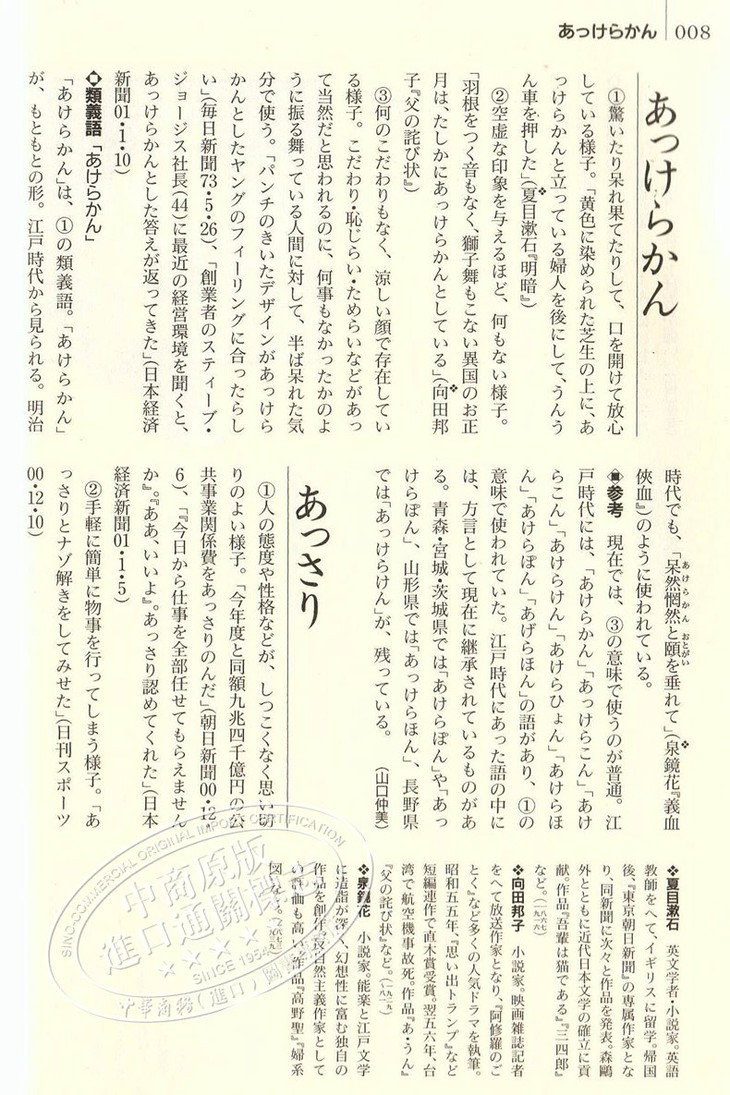 あっけらかん 008
あっけらかん
①驚いたり呆れ果てたりして、口を開けて放心
している様子。「黄色に染められた芝生の上に、あ
っけらかんと立っている婦人を後にして、うんう
ん車を押した」(夏目漱石『明暗』)
②空虚な印象を与えるほど、何もない様子。
「羽根をつく音もなく、獅子舞もこない異国のお正
月は、たしかにあっけらかんとしている」(向田邦
子『父の詫び状』)
③何のこだわりもなく、涼しい顔で存在してい
る様子。こだわり・恥じらい・ためらいなどがあっ
て当然だと思われるのに、何事もなかったかのよ
うに振る舞っている人間に対して、半ば呆れた気
分で使う。「パンチのきいたデザインがあっけら
かんとしたヤングのフィーリングに合ったらし
い」(毎日新聞73・5・26)、「創業者のスティーブ・
ジョージス社長(44)に最近の経営環境を聞くと、
あっけらかんとした答えが返ってきた」(日本経済
新聞01・1・10)
◆類義語「あけらかん」
「あけらかん」は、①の類義語。「あけらかん」
が、もともとの形。江戸時代から見られる。明治
時代でも、「呆然惘然と頤を垂れて」(泉鏡花『義血
あけらかん おとがい
侠血』)のように使われている。
▣参考 現在では、③の意味で使うのが普通。江
戸時代には、「あけらかん」「あっけらこん」「あけ
らこん」「あけらけん」「あけらひょん」「あけらほ
ん」「あけらぽん」「あげらほん」の語があり、①の
意味で使われていた。江戸時代にあった語の中に
は、方言として現在に継承されているものがあ
る。青森・宮城・茨城県では「あけらぽん」や「あっ
けらぽん」、山形県では「あっけらほん」、長野県
では「あっけらけん」が、残っている。 (山口仲美)
あっさり
①人の態度や性格などが、しつこくなく思い切
りのよい様子。「今年度と同額九兆四千億円の公
共事業関係費をあっさりのんだ」(朝日新聞00・12・
6)、「『今日から仕事を全部任せてもらえません
か』。『ああ、いいよ』。あっさり認めてくれた」(日本
経済新聞01・1・5)
②手軽に簡単に物事を行ってしまう様子。「あ
っさりとナゾ解きをしてみせた」(日刊スポーツ
00・12・10)
❖夏目漱石 英文学者・小説家。英語
教師をへて、イギリスに留学。帰国
後、『東京朝日新聞』の専属作家とな
り、同新聞に次々と作品を発表。森鷗
外とともに近代日本文学の確立に貢
献。作品『吾輩は猫である』『三四郎』
など。
❖向田邦子 小説家。映画雑誌記者
をへて放送作家となり、『阿修羅のご
とく』など多くの人気ドラマを執筆。
昭和五五年、『思い出トランプ』など
短編連作で直木賞受賞。翌五六年、台
湾で航空機事故死。作品『あ・うん』
『父の詫び状』など。
❖泉鏡花 小説家。能楽と江戸文学
に造詣が深く、幻想性に富む独自の
作品を創作。反自然主義作家として
の評価も高い。作品『高野聖』『婦系
図』など。
SINO-COMMERCIAL ORIGINAL IMPORTATION CERTIFICATION
中商原版
進口通關標
SINCE 1954